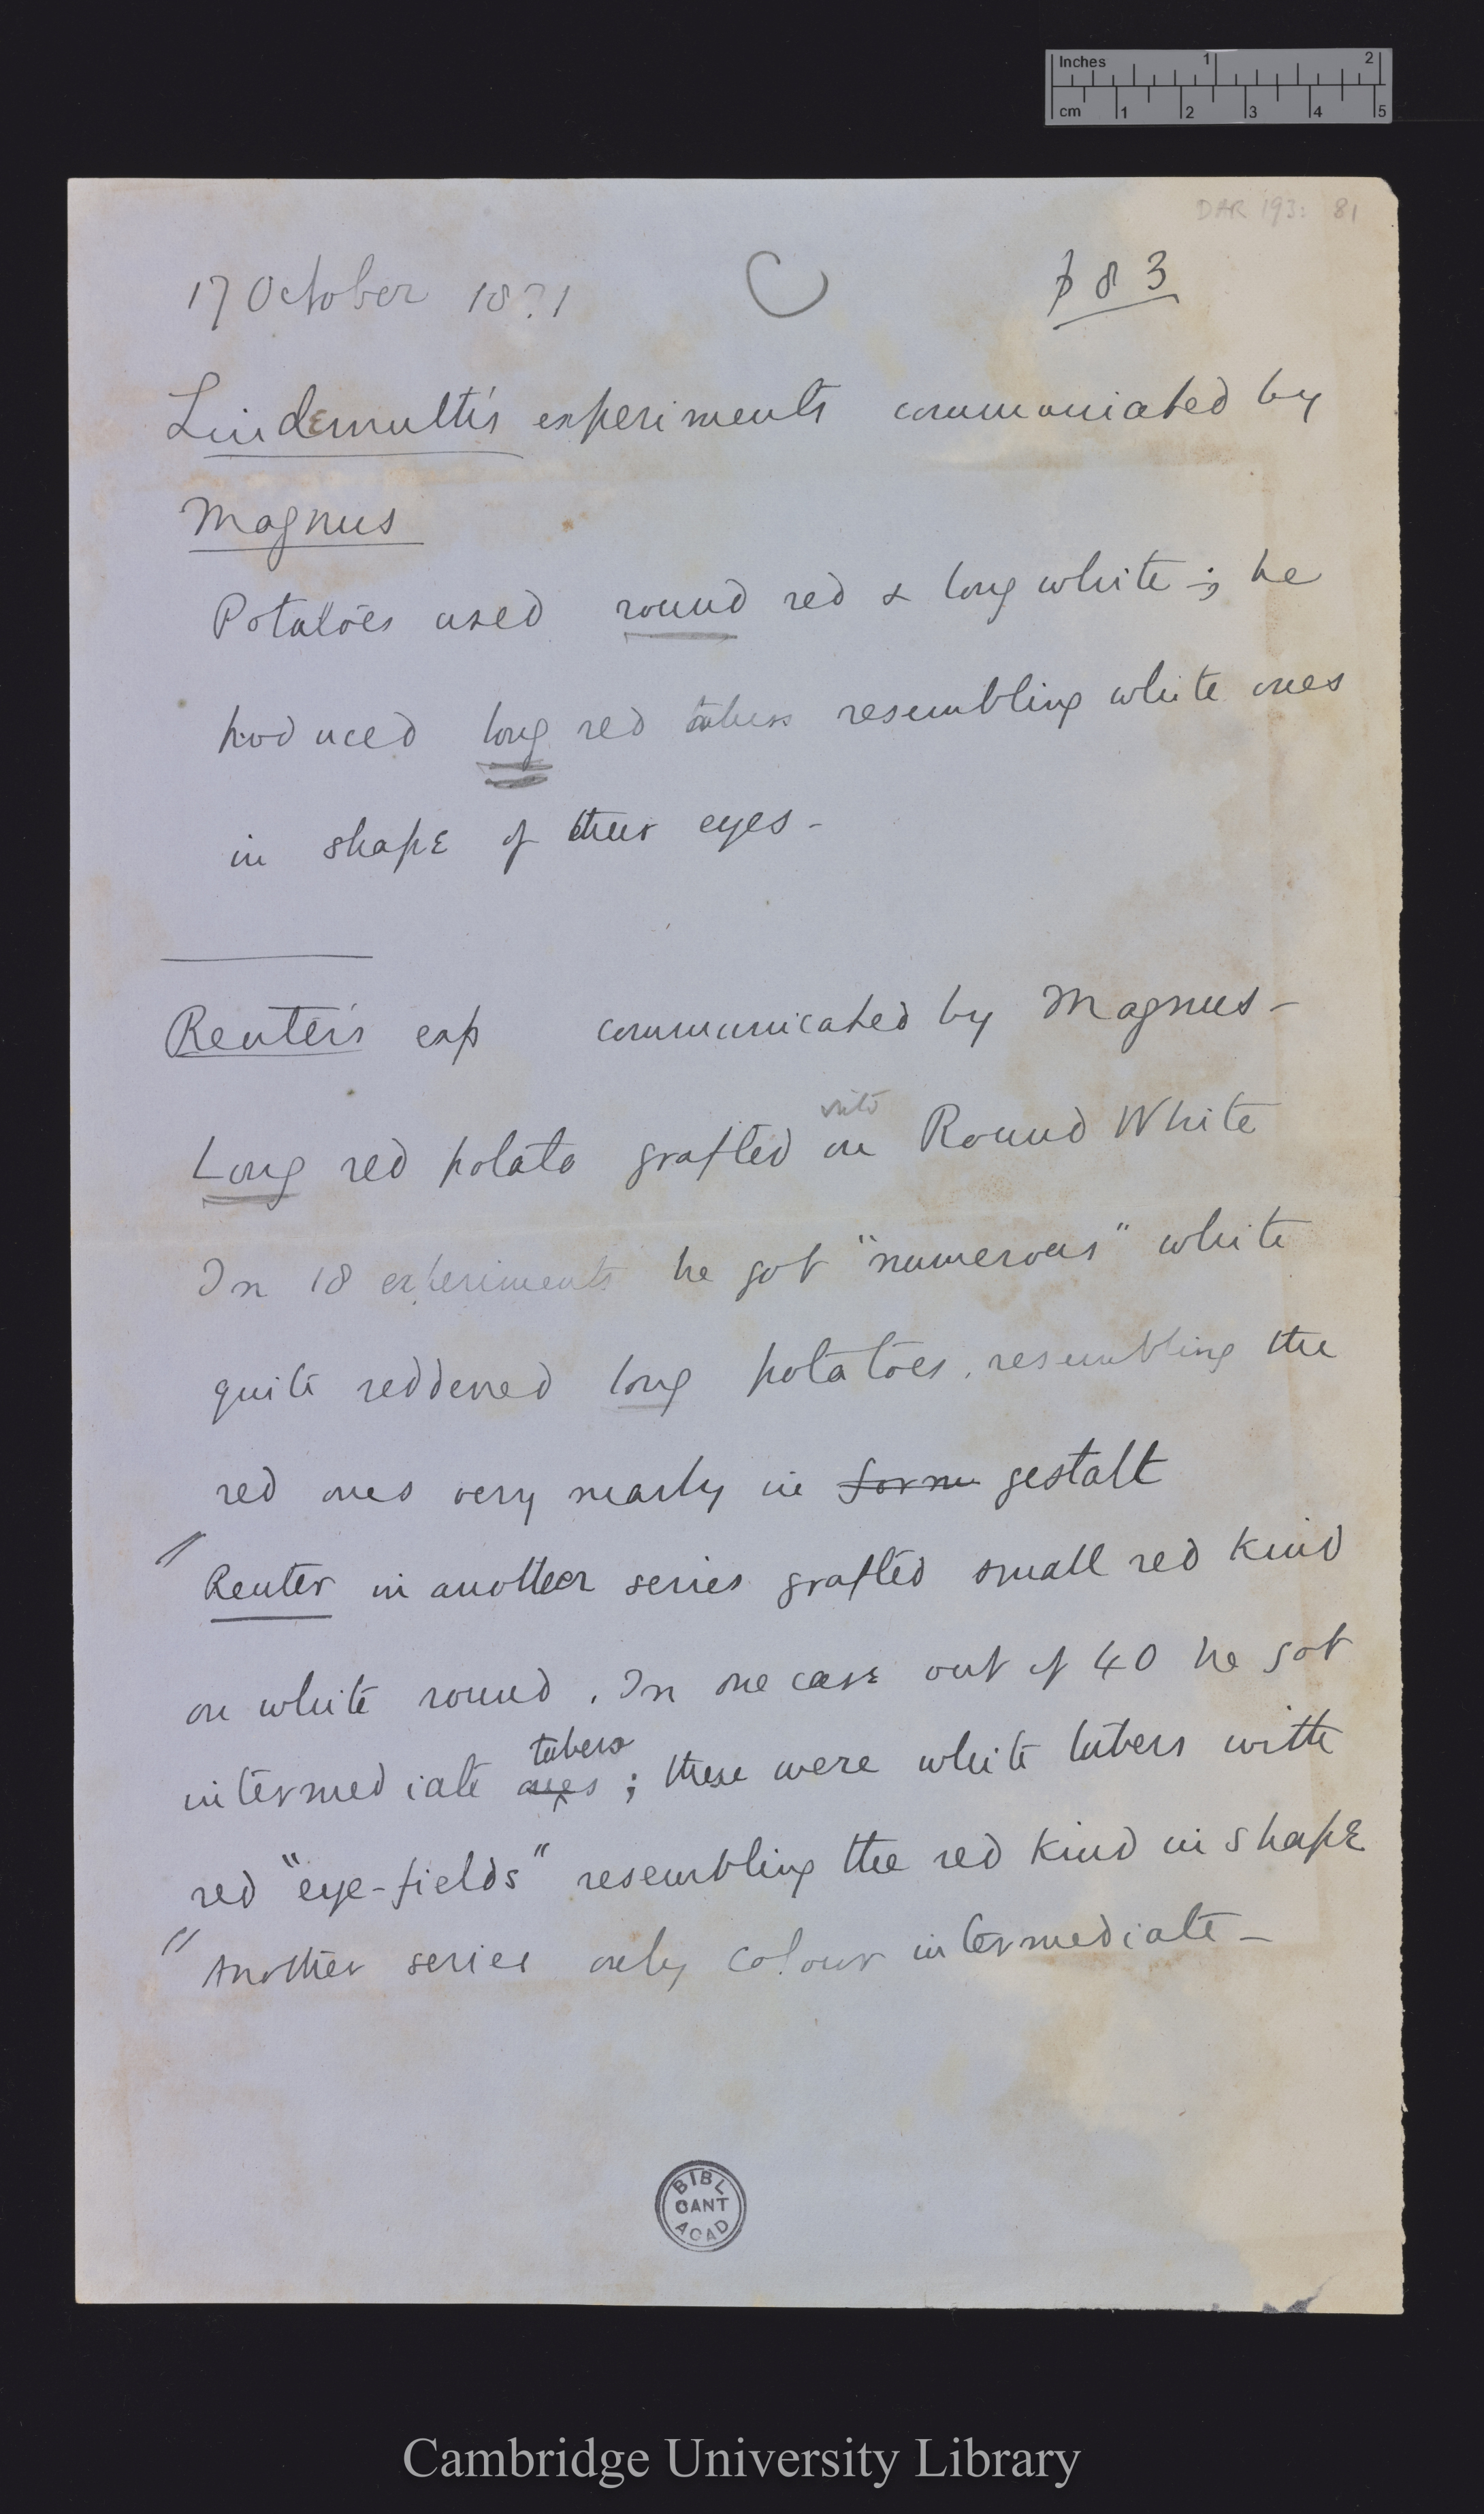 Inches 1 2
cm 1 2 3 4 5
DAR 193: 81
17 October 18?1
C
p 83
Lindemuth's experiments communiated by
Magnus
Potatoes used round red & long white -; he
produced long red tubers resembling white ones
in shape of their eyes -
Reuter's exp communicated by Magnus -
into
Long red potato grafted on Round White
In 18 experiments he got "numerous" white
quite reddened long potatoes, resembling the
red ones very nearly in form gestalt
" Reuter in another series grafted small red kind
on white round. In one case out of 40 he got
tubers
intermediate ones; these were white tubers with
red "eye-fields" resembling the red kind in shape
" Another series only colour intermediate -
BIBL
CANT
ACAD
Cambridge University Library